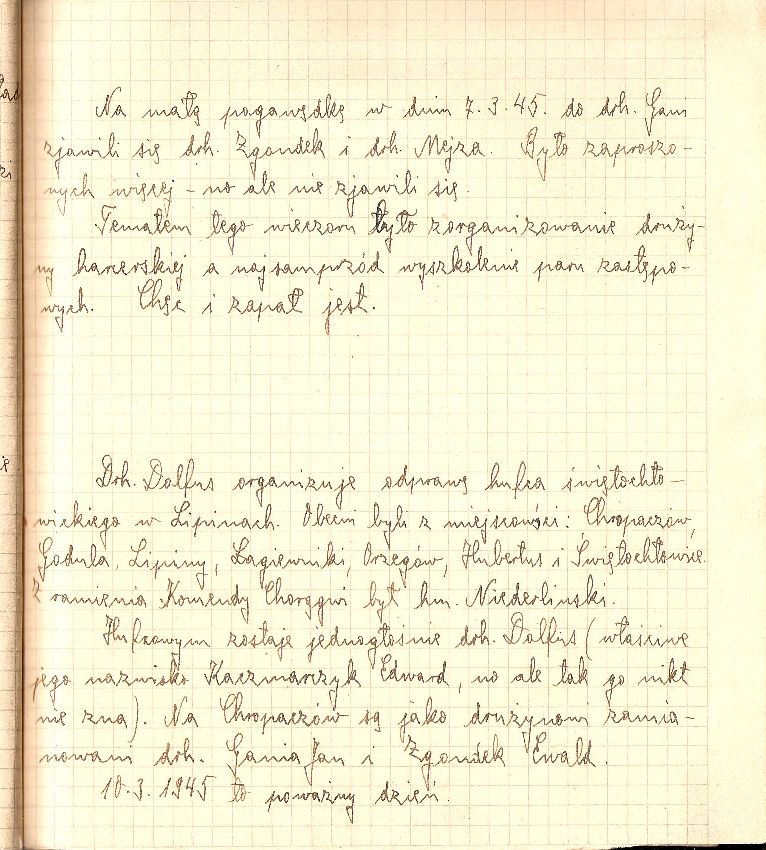 Na małą pogawędkę w dniu 7.3.45. do drh. Gani
zjawili się drh. Zgondek i drh. Mejza. Było zaproszo-
nych więcej - no ale nie zjawili się.
Tematem tego wieczoru było zorganizowanie druży-
ny harcerskiej a najsamprzód wyszkolenie paru zastępo-
wych. Chęć i zapał jest.
Drh. Dolfus organizuje odprawę hufca świętochło-
wickiego w Lipinach. Obecni byli z miejscowości: Chropaczów,
Godula, Lipiny, Łagiewniki, Orzegów, Hubertus i Świętochłowice.
Z ramienia Komendy Chorągwi był hm. Niederlinski.
Hufcowym zostaje jednogłośnie drh. Dolfus (właściwe
jego nazwisko Kaczmarczyk Edward, no ale tak go nikt
nie zna). Na Chropaczów są jako drużynowi zamia-
nowani drh. Gania Jan i Zgondek Ewald.
10.3.1945 to poważny dzień.